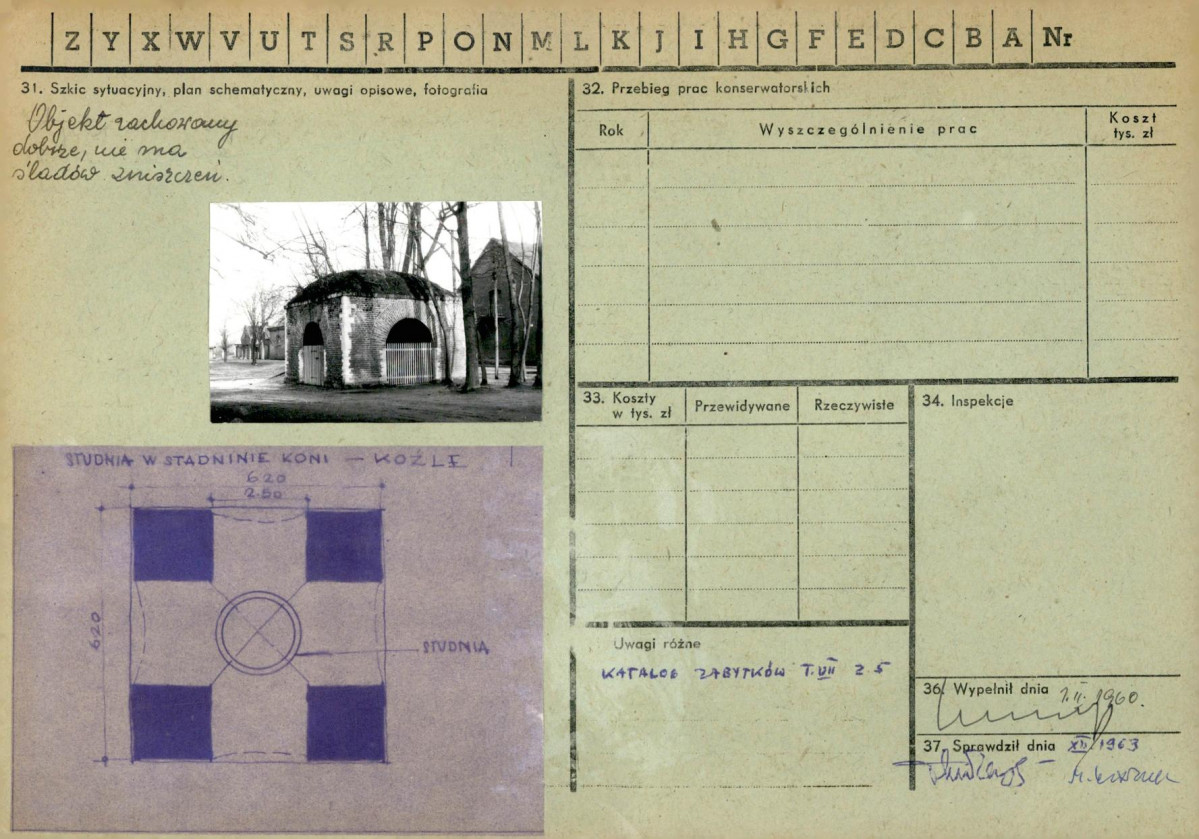 Z Y X W V U T S R P O N M L K J I H G F E D C B A Nr
31. Szkic sytuacyjny, plan schematyczny, uwagi opisowe, fotografia
Objekt zachowany
dobrze, nie ma
śladów zniszczeń.
STUDNIA W STADNINIE KONI — KOŹLE
620
2.50
620
STUDNIA
32. Przebieg prac konserwatorskich
Rok
Wyszczególnienie prac
Koszt
tys. zł
33. Koszty
w tys. zł
Przewidywane
Rzeczywiste
34. Inspekcje
Uwagi różne
KATALOG ZABYTKÓW T. VII Z 5
36. Wypełnił dnia 1.II.1960.
37. Sprawdził dnia XII/1963